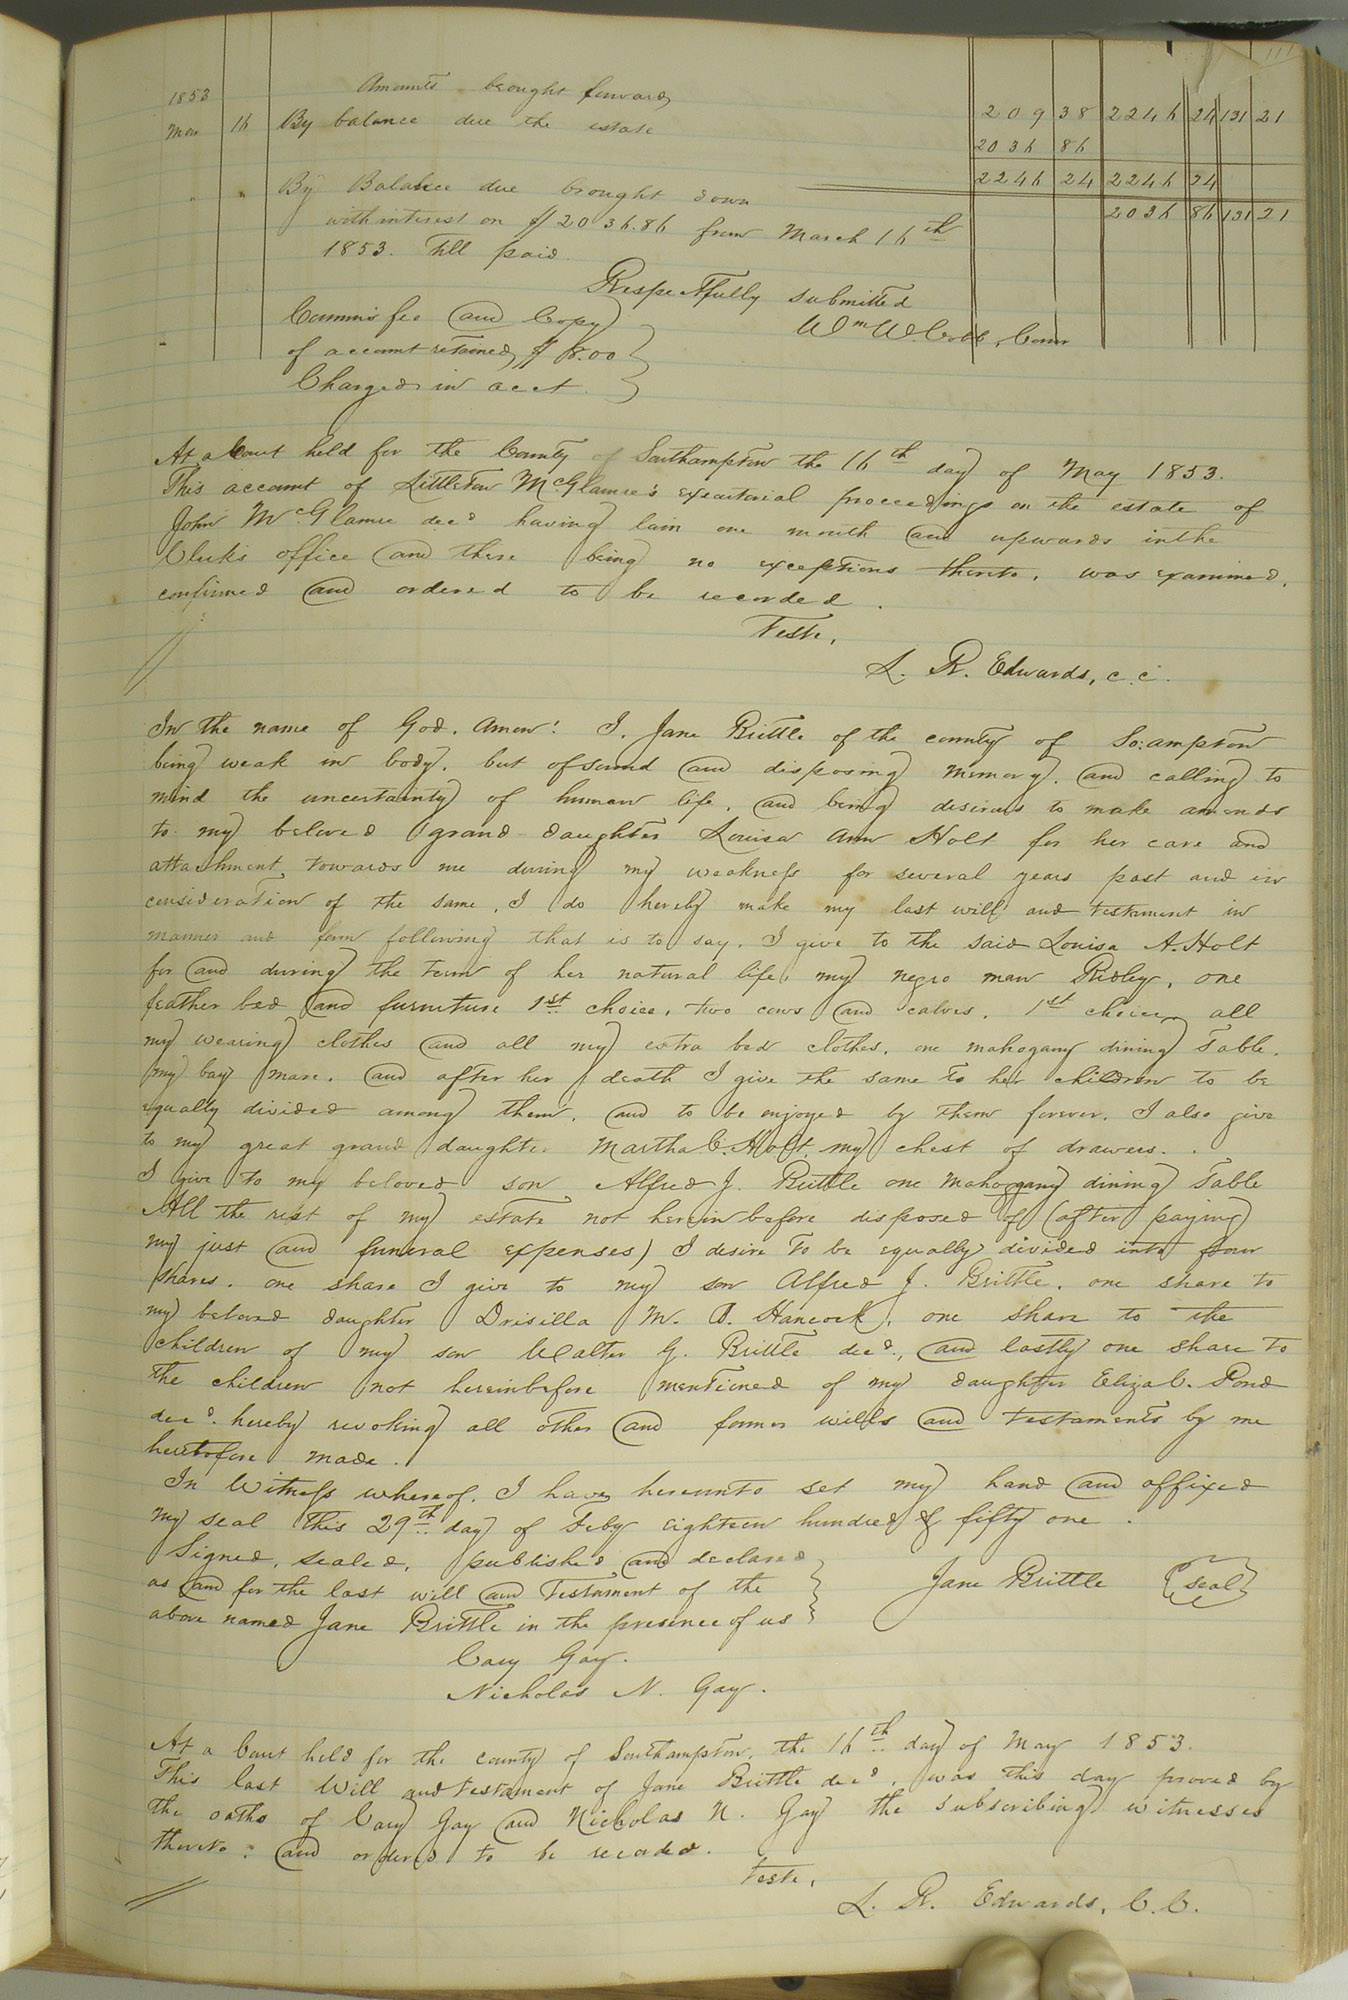 111
1853 Amounts brought forward 209 38 2246 24 131 21
Mar 16 By balance due the estate 2036 86
2246 24 2246 24
" " By Balance due brought down 2036 86 131 21
with interest on $2036.86 from March 16th
1853. till paid.
Respectfully submitted
Wm W. Cobb, Comr
Commrs fee and Copy
of account retained, $8.00
Charged in acct.
At a Court held for the County of Southampton the 16th day of May 1853.
This account of Littleton McGlamre's executorial proceedings on the estate of
John McGlamre decd having lain one month and upwards in the
Clerk's office and there being no exceptions thereto, was examined,
confirmed and ordered to be recorded.
Teste,
L. R. Edwards, c.c.
In the name of God. Amen! I, Jane Brittle of the county of So:ampton
being weak in body, but of sound and disposing memory, and calling to
mind the uncertainty of human life, and being desirous to make amends
to my beloved grand daughter Louisa Ann Holt for her care and
attachment towards me during my weakness for several years past and in
consideration of the same, I do hereby make my last will and testament in
manner and form following that is to say, I give to the said Louisa A. Holt
for and during the term of her natural life, my negro man Ridley, one
feather bed and furniture 1st choice, two cows and calves, 1st choice, all
my wearing clothes and all my extra bed clothes, one mahogany dining Table,
my bay mare, and after her death I give the same to her children to be
equally divided among them, and to be enjoyed by them forever. I also give
to my great grand daughter Martha C. Holt, my chest of drawers.
I give to my beloved son Alfred J. Brittle one mahogany dining Table
All the rest of my estate not herein before disposed of (after paying
my just and funeral expenses) I desire to be equally divided into four
shares. one share I give to my son Alfred J. Brittle, one share to
my beloved daughter Drisilla M. B. Hancock, one share to the
children of my son Walter G. Brittle decd., and lastly one share to
the children not hereinbefore mentioned of my daughter Eliza C. Pond
decd. hereby revoking all other and former wills and testaments by me
heretofore made.
In Witness whereof, I have hereunto set my hand and affixed
my seal this 29th day of Feby eighteen hundred & fifty one.
Signed, sealed, published and declared
as and for the last will and Testament of the Jane Brittle (seal)
above named Jane Brittle in the presence of us
Cary Gay.
Nicholas N. Gay.
At a Court held for the county of Southampton, the 16th day of May 1853.
This last Will and testament of Jane Brittle decd, was this day proved by
the oaths of Cary Gay and Nicholas N. Gay the subscribing witnesses
thereto; and ordered to be recorded.
Teste,
L. R. Edwards, C.C.